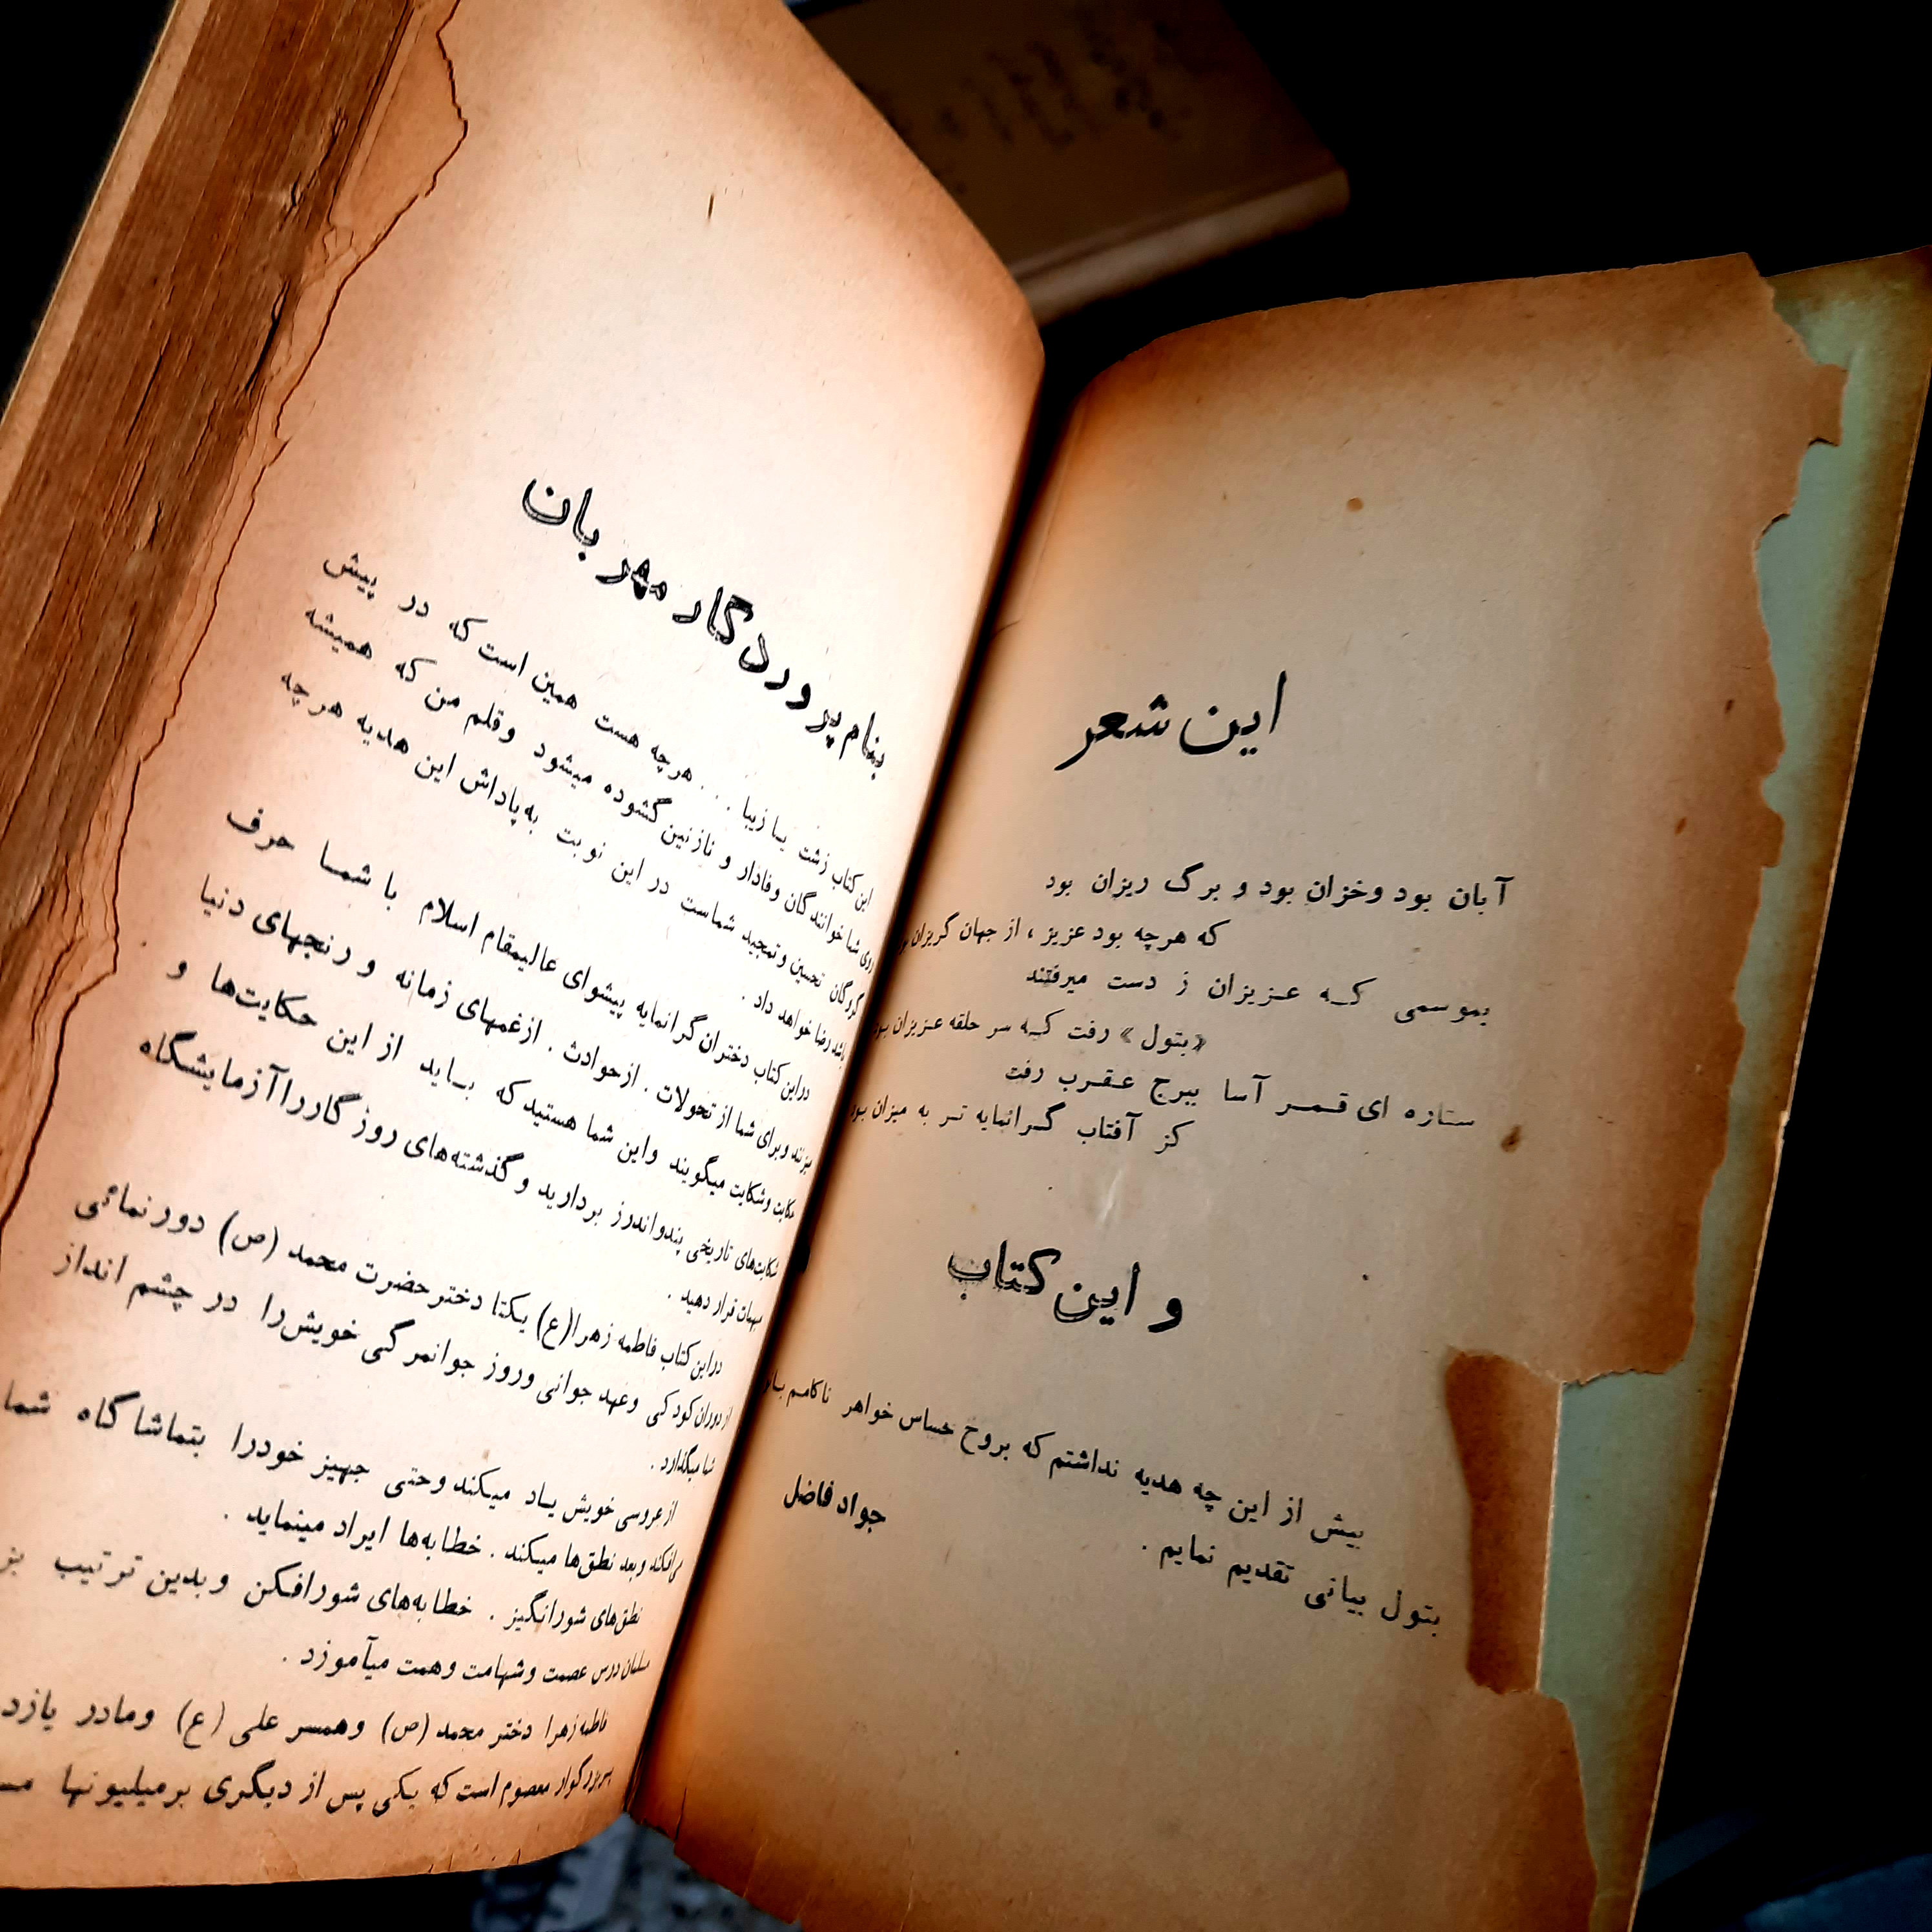 این شعر
آبان بود وخزان بود و برگ ریزان بود
که هرچه بود عزیز ، از جهان گریزان
بموسمی که عزیزان ز دست میرفتند
«بتول» رفت که سر حلقه عزیزان بود
ستاره ای قمر آسا ببرج عقرب رفت
کز آفتاب گرانمایه تر به میزان بود
و این کتاب
بیش از این چه هدیه نداشتم که بروح حساس خواهر ناکامم
بتول بیانی تقدیم نمایم .
جواد فاضل
بنام پروردگار مهربان
این کتاب زشت یا زیبا . . . هرچه هست همین است که در پیش
روی شما خوانندگان وفادار و نازنین گشوده میشود وقلم من که همیشه
گروگان تحسین وتمجید شماست در این نوبت به پاداش این هدیه هرچه
باشد رضا خواهد داد .
دراین کتاب دختران گرانمایه پیشوای عالیمقام اسلام با شما حرف
میزنند وبرای شما از تحولات . ازحوادث . ازغمهای زمانه و رنجهای دنیا
حکایت وشکایت میگویند واین شما هستید که باید از این حکایت‌ها و
شکایت‌های تاریخی پندواندرز بردارید و گذشته‌های روزگار راآزمایشگاه
جهان قرار دهید .
دراین کتاب فاطمه زهرا(ع) یکتا دختر حضرت محمد (ص) دورنمائی
از دوران کودکی وعهد جوانی وروز جوانمرگی خویش‌را در چشم انداز
شما میگذارد .
از عروسی خویش یاد میکند وحتی جهیز خودرا بتماشا گاه شما
میافکند وبعد نطق‌ها میکند . خطابه‌ها ایراد مینماید .
نطق‌های شورانگیز . خطابه‌های شورافکن وبدین ترتیب
مسلمان درس عصمت وشهامت وهمت میآموزد .
فاطمه زهرا دختر محمد (ص) وهمسر علی (ع) ومادر یازده
بزرگوار معصوم است که یکی پس از دیگری برمیلیونها